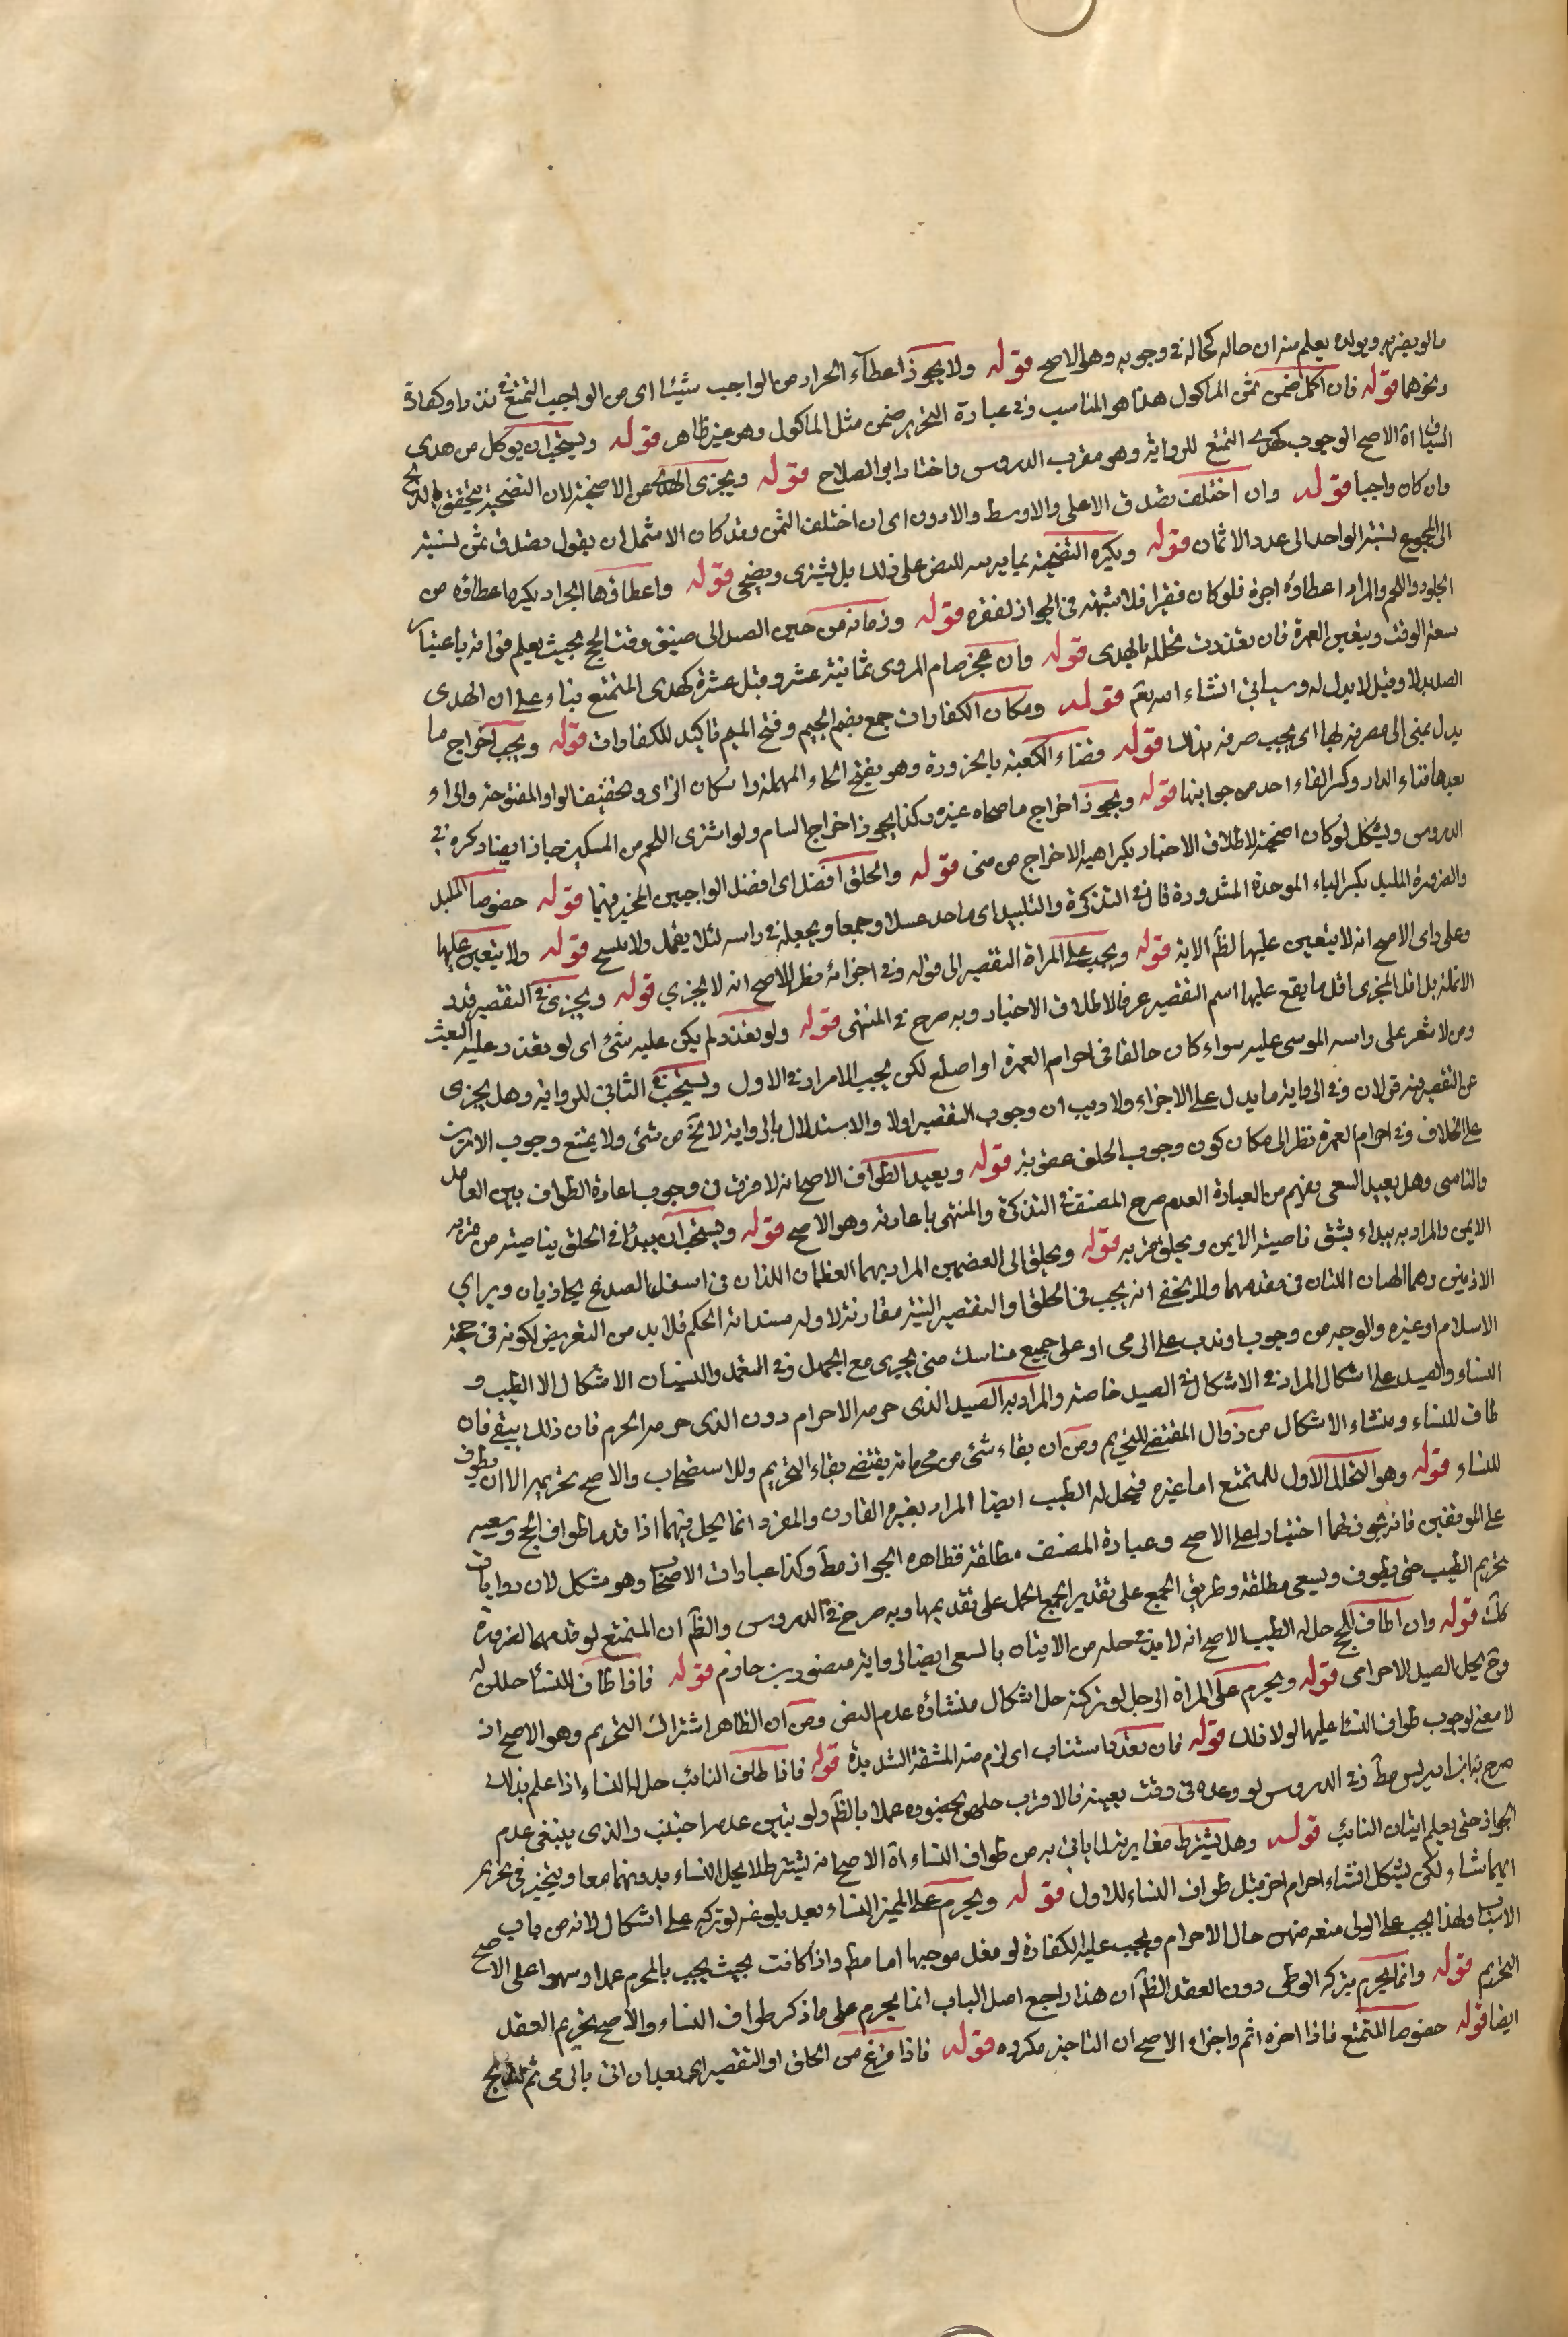 مالو يضر به وبولده يعلم منه ان حاله كحاله في وجوبه وهو الاصح قوله ولا يجوز اعطاء الجزار من الواجب شيئا اى من الواجب التمتع في نذر او كفارة
ونحوهما قوله فان اكل ضمن ثمن الماكول هذا هو المناسب وفي عبارة التحرير ضمن مثل الماكول وهو غير ظاهر قوله ويستحب ان يوكل من هدى
السياق اة الاصح الوجوب كهدى التمتع للرواية وهو مقرب الدروس واختار ابو الصلاح قوله ويجزى الهدى عن الاضحية لان التضحية يتحقق بالذبح
وان كان واجبا قوله وان اختلف تصدق الاعلى والاوسط والادون اى ان اختلف الثمن وقد كان الاشمل ان يقول تصدق بثمن نسبته
الى المجموع نسبة الواحد الى عدد الاثمان قوله ويكره التضحية بما يربيه للنص على ذلك بل يشترى ويضحى قوله واعطاؤها الجزار يكره اعطاؤه من
الجلود واللحم والمراد اعطاؤه اجرة فلو كان فقيرا فلا شبهة في الجواز لفقره قوله وزمانه من حين الصد الى ضيق وقت الحج بحيث يعلم فواته باعتبار
سعة الوقت ويتعين العمرة فان تعذرت تحلله بالهدى قوله وان عجز صام المروى ثمانية عشر وقيل عشرة كهدى المتمتع بناء على ان الهدى
الصد بدلا وقيل لا بدل له وسياتى انشاء الله تعم قوله ومكان الكفارات جمع بضم الجيم وفتح الميم تاكيد للكفارات قوله ويجب اخراج ما
يدل بمنى الى مصرفه بها اى يجب صرفه بذلك قوله وفناء الكعبة بالحزورة وهو بفتح الحاء المهملة واسكان الزاى وتخفيف الواو المفتوحة والراء
بعدها فناء الدار وكسر الفاء احد من جوانبها قوله ويجوز اخراج ما ضحاه غيره وكذا يجوز اخراج السنام ولو اشترى اللحم من المسكين جاز ايضا وكره في
الدروس ويشكل لو كان اضحية لاطلاق الاخبار بكراهية الاخراج من منى قوله والحلق افضل اى افضل الواجبين المخير فيهما قوله خصوصا الملبد
والصرورة الملبد بكسر الباء الموحدة المشددة قال في التذكرة والتلبيد اى ماحد عسلا وصمغا ويجعله في راسه لئلا يقمل ولا يتسخ قوله ولا يتعين عليها
وعلى راى الاصح انه لا يتعين عليهما لظ الاية قوله ويجب على المراة التقصير الى قوله وفي اجزائه نظر الاصح انه لا يجزي قوله ويجزى في التقصير قدر
الانملة بل اقل المجزى اقل ما يقع عليها اسم التقصير عرفا لاطلاق الاخبار وبه صرح في المنتهى قوله ولو تعذر لم يكن عليه شئ اى لو تعذر عليه البعث
ومن لا شعر على راسه الموسى عليه سواء كان حالقا في احرام العمرة او اصلع لكن يجب الامرار في الاول ويستحب في الثانى للرواية وهل يجزى
عن التقصير فيه قولان وفي الرواية ما يدل على الاجزاء ولا ريب ان وجوب التقصير اولا والاستدلال بالرواية لا تخ من شئ ولا يمتنع وجوب الامرين
على الخلاف وفي احرام العمرة نظر الى مكان كون وجوب الحلف عقوبة قوله ويعيد الطواف الاصح انه لا فرق في وجوب اعادة الطواف بين العامد
والناسى وهل يعيد السعى يفهم من العبارة العدم صرح المصنف في التذكرة والمنتهى باعادته وهو الاصح قوله ويستحب ان يبدأ في الحلق بناصيته من قرنه
الايمن والمراد به يبداء بشق ناصيته الايمن ويحلق قرنه قوله ويحلق الى العظمين المراد بهما العظمان اللذان في اسفل الصدغ يحاذيان وبراي
الاذنين وهما الهصان اللتان في مقدمهما ولا يخفى انه يجب في الحلق او التقصير النية مقارنة لاوله مستدامة الحكم فلا بد من التعريض لكونه في حجة
الاسلام او غيره والوجه من وجوب او ندب على الرمى او على جميع مناسك منى يجرى مع الجهل وفي التعمد والنسيان الاشكال الا الطيب و
النساء والصيد على اشكال المراد في الاشكال في الصيد خاصة والمراد به الصيد الذى حرمه الاحرام دون الذى حرمه الحرم فان ذلك يبقى فان
طاف للنساء ومنشاء الاشكال من زوال المقتضى للتحريم ومن ان بقاء شئ من محرماته يقتضى بقاء التحريم وللاستصحاب والاصح تحريمه الا ان يطوف
للنساء قوله وهو التحلل الاول للمتمتع اما غيره فيحل له الطيب ايضا المراد بغيره القارن والمفرد انما يحل فيهما اذا قدما طواف الحج وسعيه
على الموقفين فانه يجوز لهما اختيارا على الاصح وعبارة المصنف مطلقة فظاهره الجواز مط وكذا عبارات الاصحاب وهو مشكل لان روايات
تحريم الطيب حتى يطوف ويسعى مطلقة وطريق الجمع على تقدير الجمع الحمل على تقديمها وبه صرح في الدروس والظ ان المتمتع لو قدمهما لضرورة
كك قوله وان طاف للحج حل له الطيب الاصح انه لا بد في حله من الاتيان بالسعى ايضا لرواية منصور بن حازم قوله فاذا طاف للنساء حللن له
وح يحل الصيد الاحرامى قوله ويحرم على المراة الرجل لو تركته حل اشكال منشاؤه عدم النص ومن ان الظاهر اشتراك التحريم وهو الاصح اذ
لا معنى لوجوب طواف النساء عليها لولا ذلك قوله فان تعذر استناب اى لزم منه المشقة الشديدة قوله فاذا طاف النائب حل له النساء اذا علم بذلك
صرح به ابن ادريس مط وفي الدروس لو وعده في وقت بعينه فالاقرب حلهن بحضوره عملا بالظ ولو تبين عدمه اجتنب والذى ينبغى عدم
الجواز حتى يعلم اتيان النائب قوله وهل يشترط مغايرته لما ياتى به من طواف النساء اة الاصح انه يشترط لا يحل النساء بدونهما معا ويتخير في تحريم
ايهما شاء لكن يشكل انشاء احرام اخر قبل طواف النساء للاول قوله ويحرم على المميز النساء بعد بلوغه لو تركه على اشكال لانه من باب
الاسباب ولهذا يجب على الولى منعه منهن حال الاحرام ويجب عليه الكفارة لو فعل موجبها اما مط واذا كانت بحيث يجب بالمحرم عمدا وسهوا على الاصح
التحريم قوله وانما يحرم بتركه الوطى دون العقد الظ ان هذا راجع اصل الباب انما يحرم على ما ذكر طواف النساء والاصح تحريم العقد
ايضا قوله خصوصا المتمتع فاذا اخره اثم واجزاء الاصح ان التاخير مكروه قوله فاذا فرغ من الحلق او التقصير اى بعد ان اتى بالرمى ثم الذبح